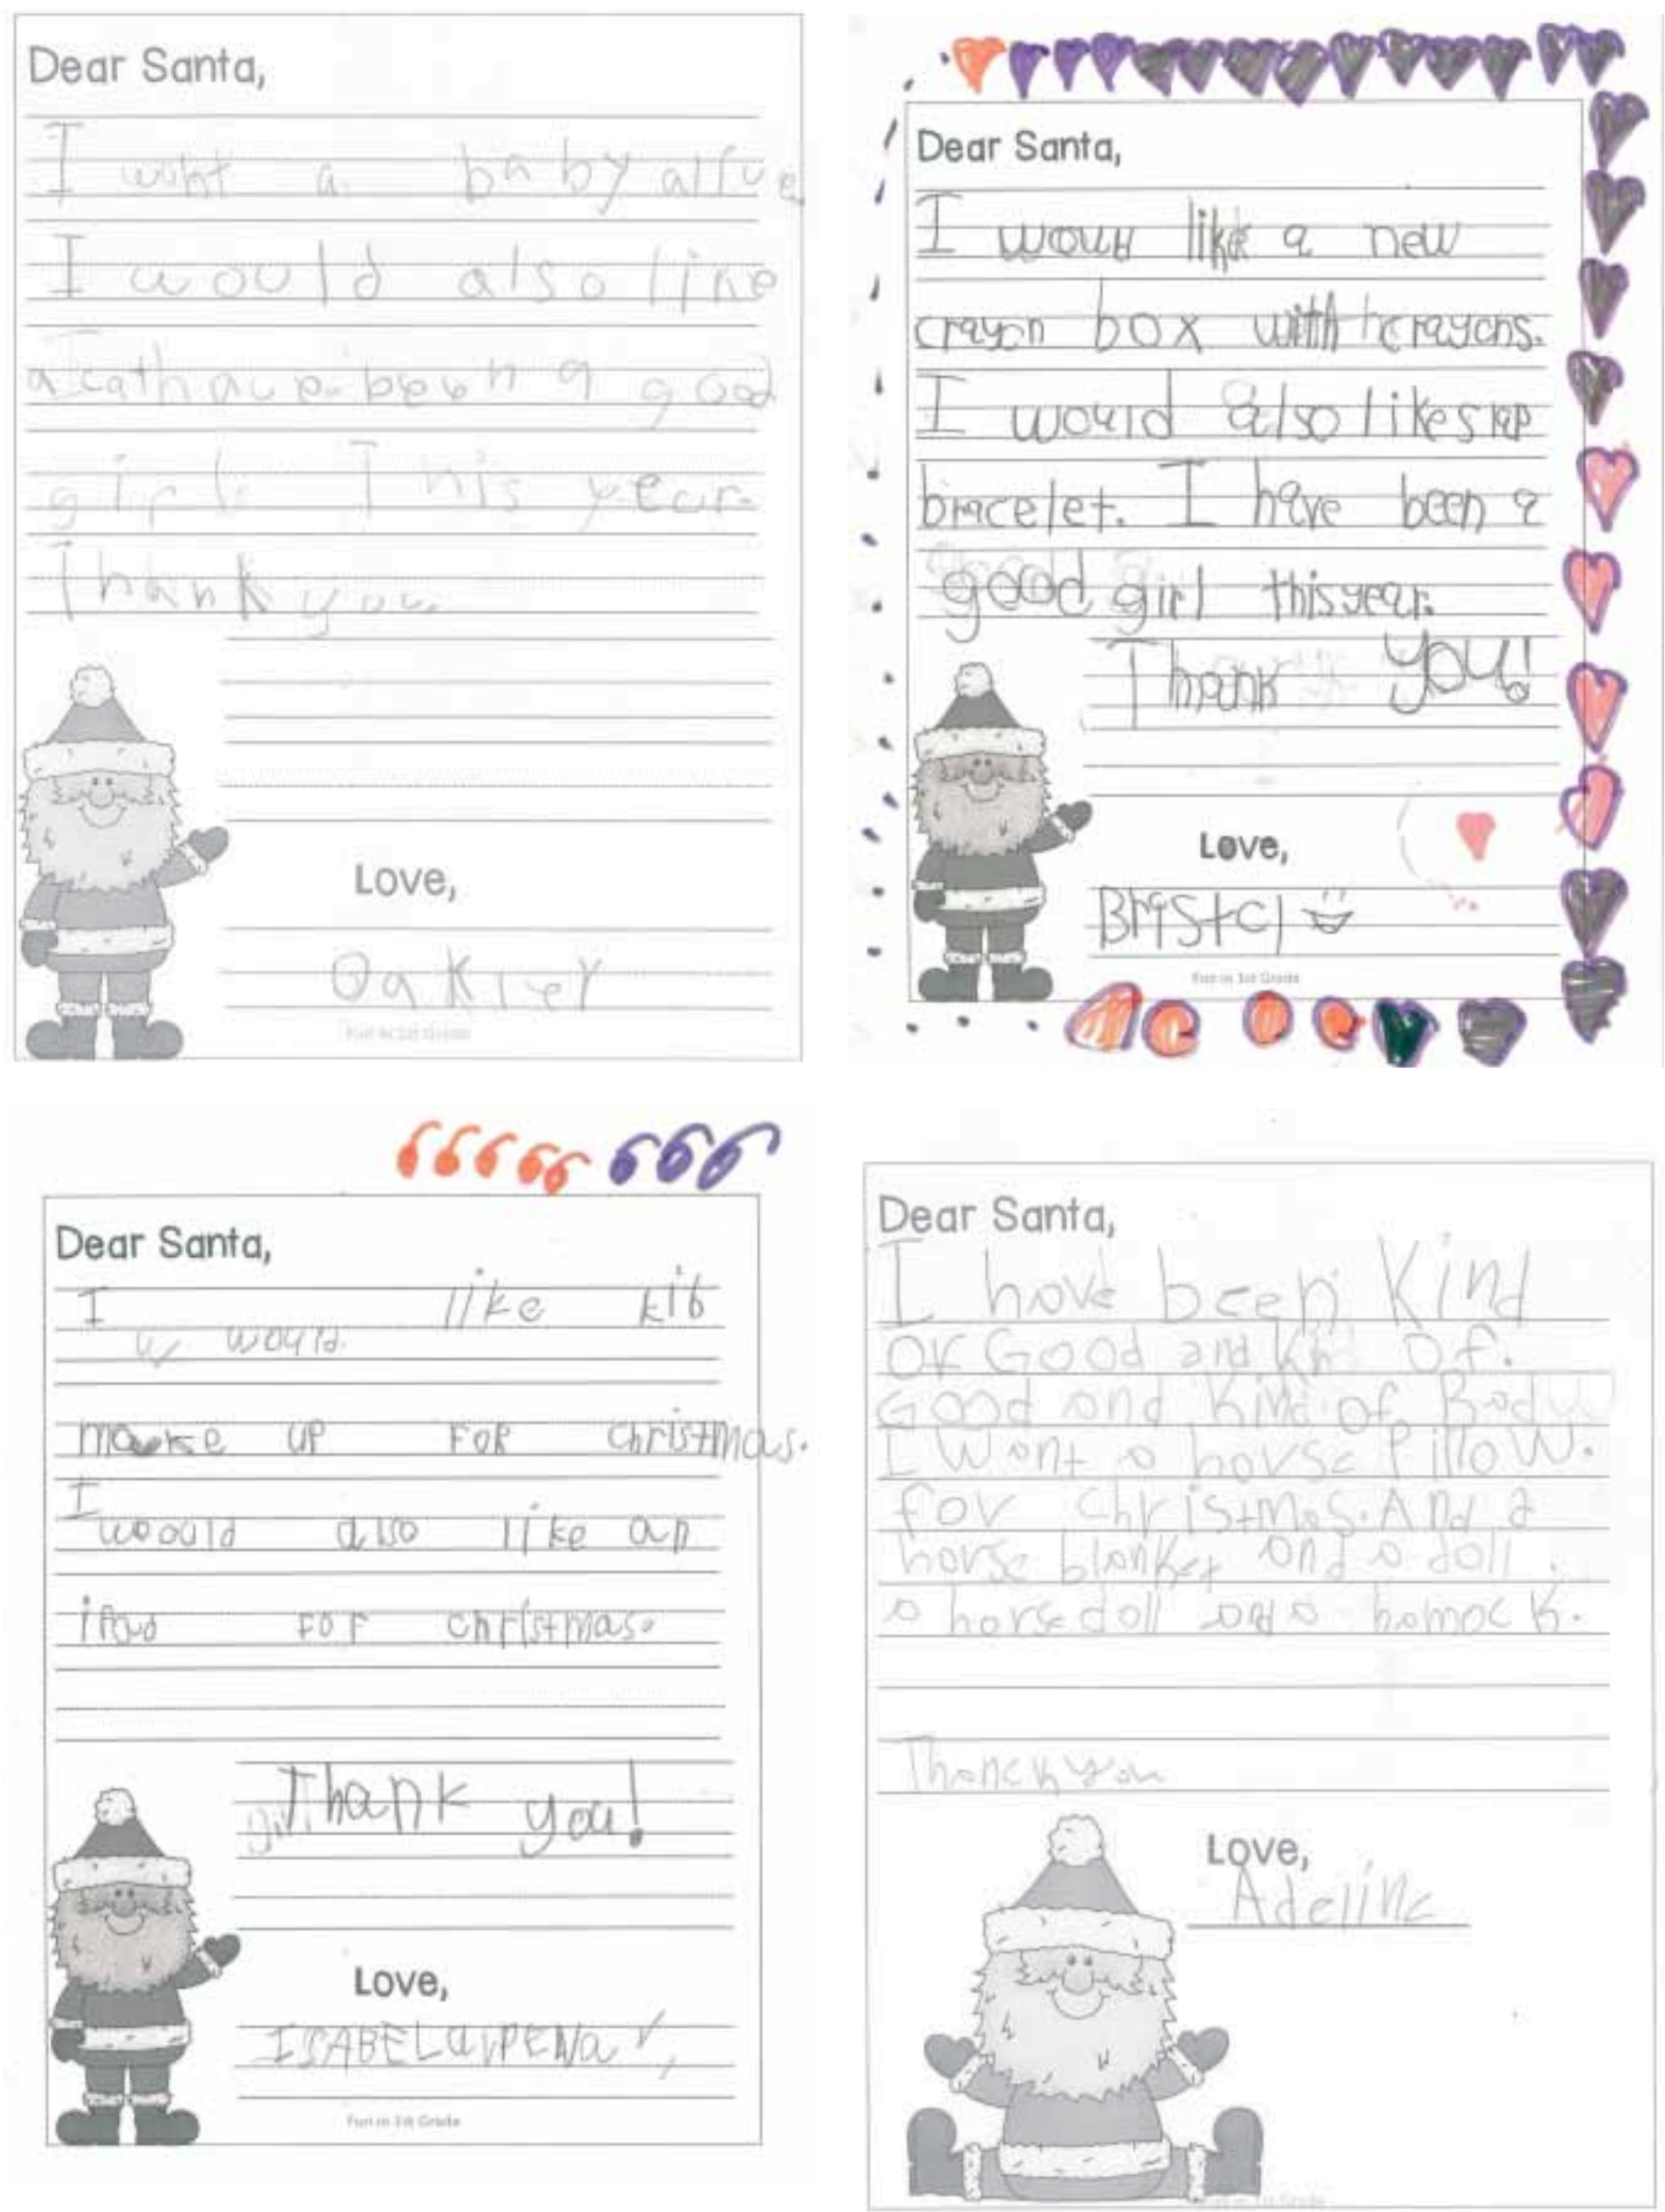 Dear Santa,
I want a baby alive
I would also like
a cat have been a good
girl. This year.
Thank you
Love,
Fun in 1st Grade
Dear Santa,
I like a new
crayon box with crayons.
I would also like slap
bracelet. I have been a
good girl this year.
Thank you!
Love,
Fun in 1st Grade
Dear Santa,
I would like kit
make up FOR christmas.
I woould also like an
ipad FOr christmas.
Thank you!
Love,
ISABELa PENa
Fun in 1st Grade
Dear Santa,
I have been Kind
Of Good and Of.
Good and Kind of Bad
I Want a horse Pillow.
for christmas. And a
horse blanket and a doll.
a horse doll and a hamock.
Thanck you
Love,
Adeline
Fun in 1st Grade